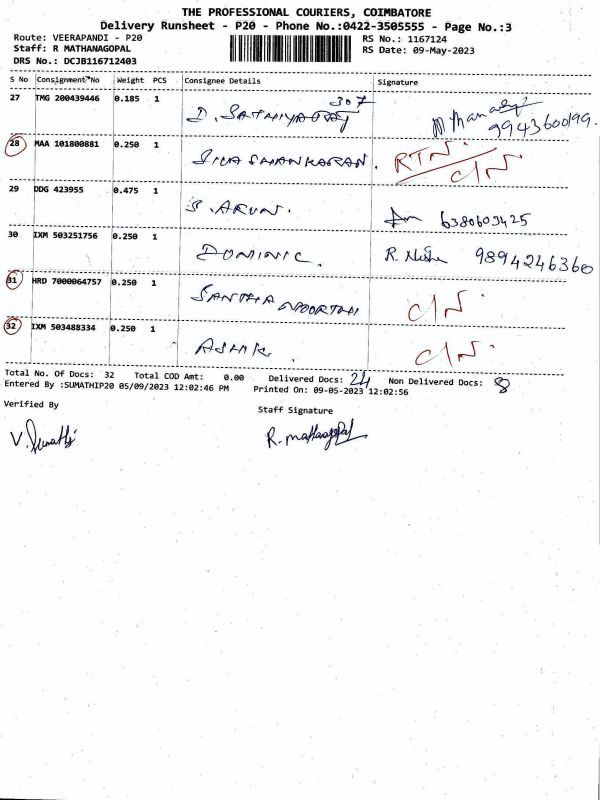 THE PROFESSIONAL COURIERS, COIMBATORE
Delivery Runsheet - P20 - Phone No.:0422-3505555 - Page No.:3
Route: VEERAPANDI - P20 RS No.: 1167124
Staff: R MATHANAGOPAL RS Date: 09-May-2023
DRS No.: DCJB116712403
S No Consignment No Weight PCS Consignee Details Signature
307
27 TMG 200439446 0.185 1 D. SATHIYARAJ 9943600199.
28 MAA 101800881 0.250 1 SIVASHANKARAN. RTN. C/N.
29 DDG 423955 0.475 1 S. ARUN. 6380603425
30 IXM 503251756 0.250 1 DOMINIC. R. Nisha 9894246360
31 HRD 7000064757 0.250 1 SANTHAMOORTHI C/N.
32 IXM 503488334 0.250 1 ASHIK. C/N.
Total No. Of Docs: 32 Total COD Amt: 0.00 Delivered Docs: 24 Non Delivered Docs: 8
Entered By :SUMATHIP20 05/09/2023 12:02:46 PM Printed On: 09-05-2023 12:02:56
Verified By Staff Signature
V. Sumathi R. Mathanagopal